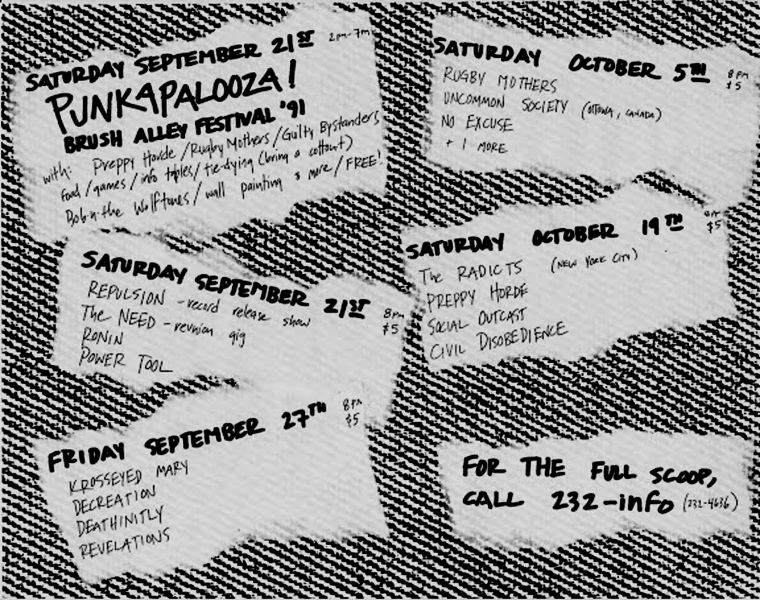 SATURDAY SEPTEMBER 21ST 2pm-7pm
PUNKAPALOOZA!
BRUSH ALLEY FESTIVAL '91
with: Preppy Horde / Rugby Mothers / Guilty Bystanders
food / games / info tables / tie-dying (bring a cottout)
Bob-n-the Wolftunes / wall painting & more / FREE!
SATURDAY SEPTEMBER 21ST 8pm $5
REPULSION - record release show
The NEED - reunion gig
RONIN
POWER TOOL
FRIDAY SEPTEMBER 27TH 8pm $5
KROSSEYED MARY
DECREATION
DEATHINITLY
REVELATIONS
SATURDAY OCTOBER 5TH 8pm $5
RUGBY MOTHERS
UNCOMMON SOCIETY (OTTOWA, CANADA)
NO EXCUSE
+ 1 MORE
SATURDAY OCTOBER 19TH 8pm $5
The RADICTS (NEW YORK CITY)
PREPPY HORDE
SOCIAL OUTCAST
CIVIL DISOBEDIENCE
FOR THE FULL SCOOP,
CALL 232-info (232-4636)